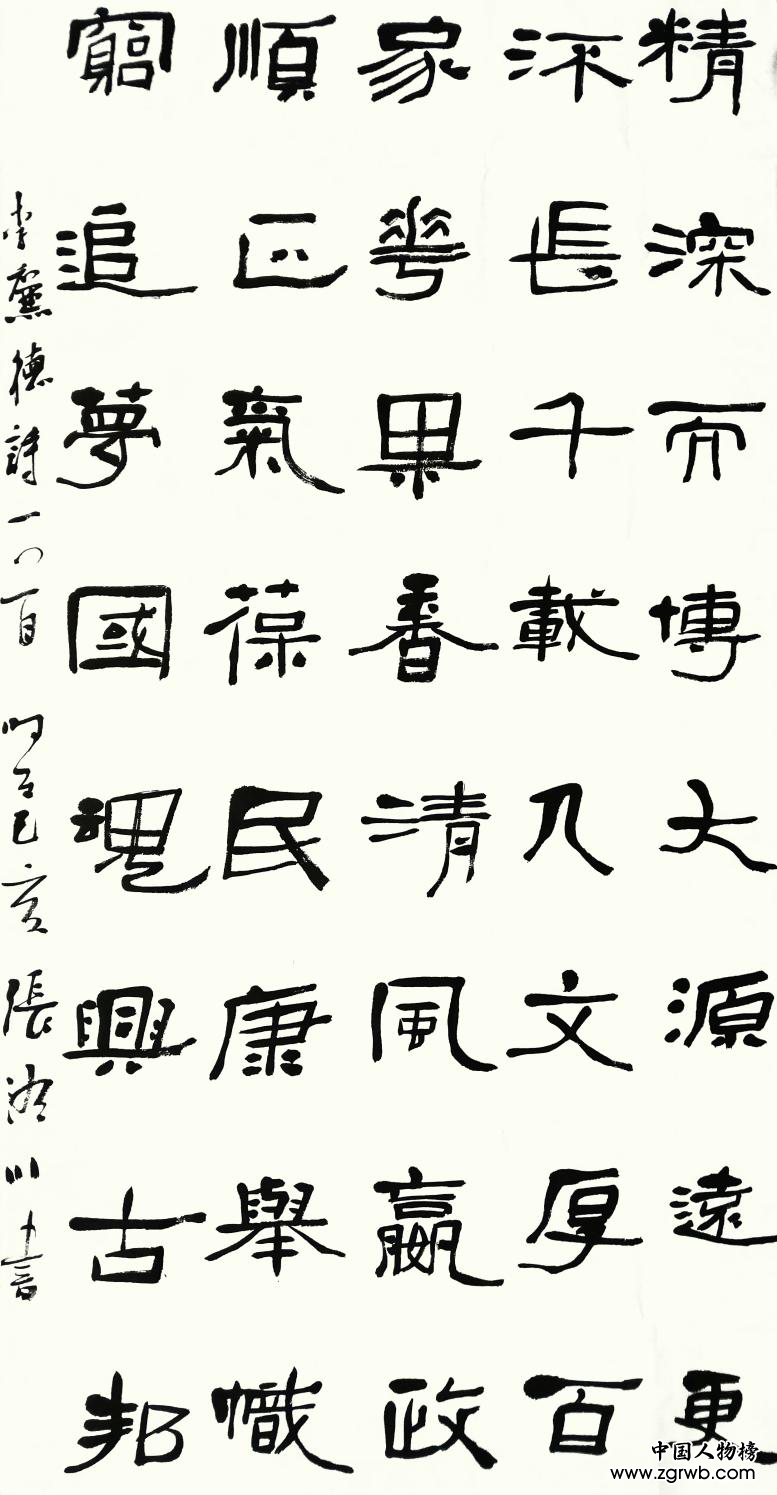 精深而博大源遠更
流長千載人文厚百
家華果香清風嬴政
順正氣葆民康舉幟
窮追夢國魂興古邦
李德詩一〇首 時在己亥 張川書
中国人物榜
www.zgrwb.com